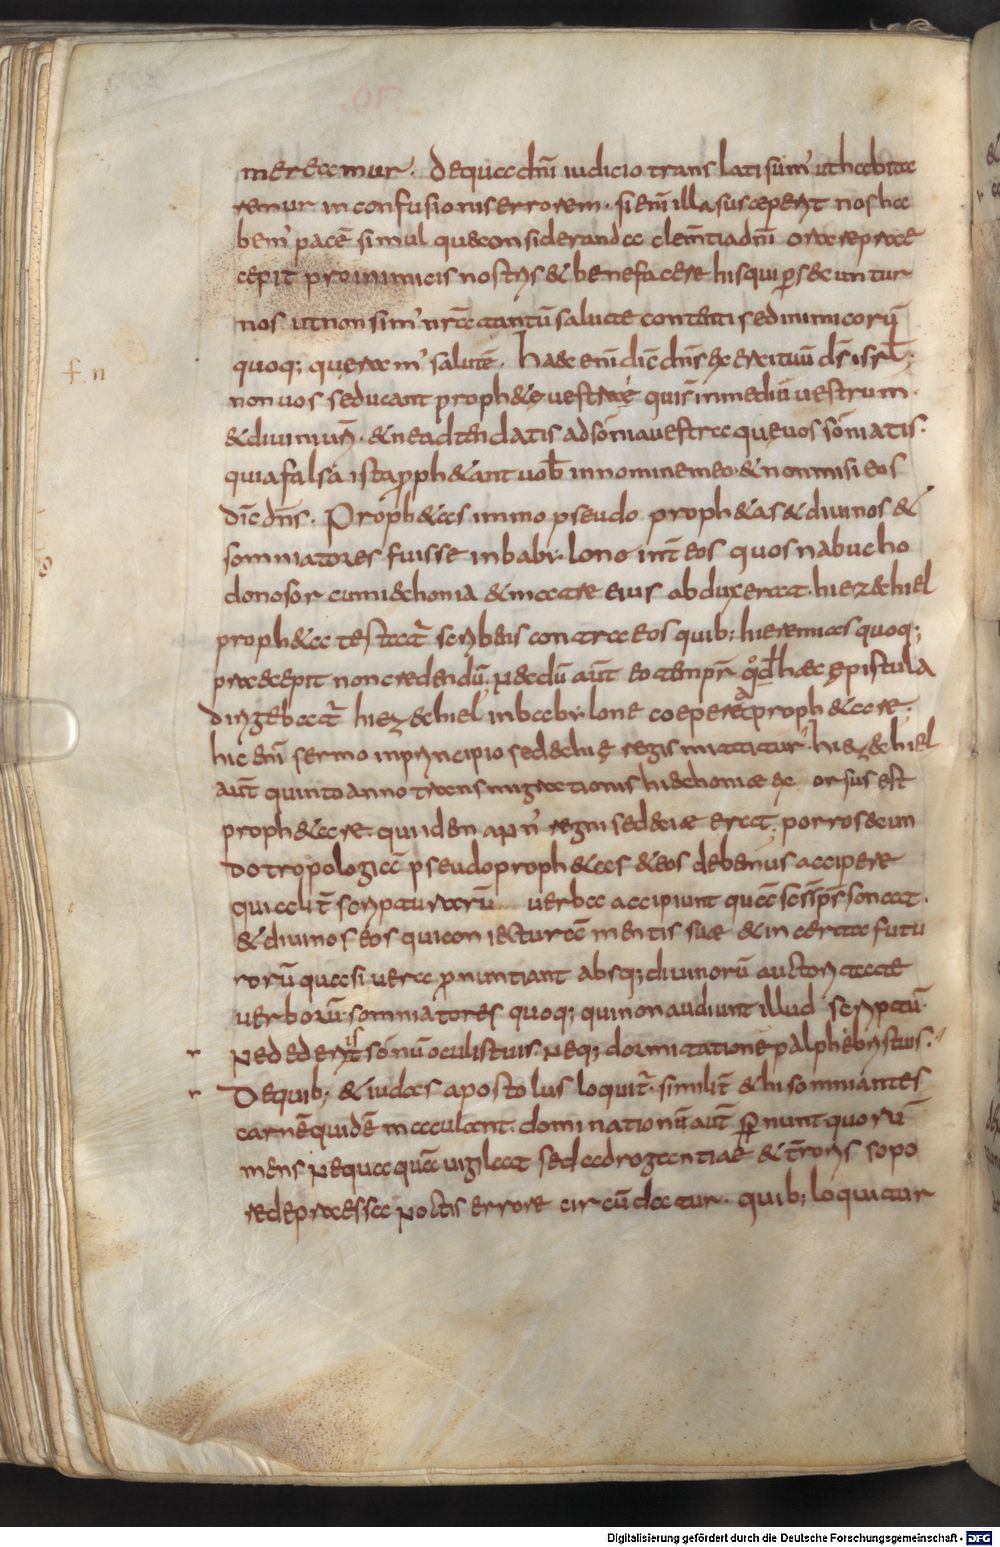 mereamur. De qua dn̄i iudicio translati sum' ut habita
remur in confusionis errorem. si enī illa susceperit nos ha
bem' pacē simul qua consideranda clem̄tia dn̄i orare prae
cepit pro inimicis nostris & benefacere his qui ꝑsecuntur
nos ut non sim' nr̄a tantū salute contenti sed inimicorū
quoq; queram' salutē. haec enī dic̄ dn̄s exercituū ds̄ isrl̄;
non uos seducant proph&ę uestrae qui sn̄t in medio uestrum.
& diuini ur̄i. & ne adtendatis ad somnia uestra quę uos som̄iatis.
quia falsa ista proph&ant uob̄ in nomine meo & non misi eos
dic̄ dn̄s. Proph&as immo pseudo proph&as & diuinos &
somniatores fuisse in babylone int̄ eos quos nabucho
donosor cum iechonia & matre eius abduxerat. hiezechiel
proph&a testat̄ scribens contra eos quib; hieremias quoq;
praecepit non credendū. necdū aut̄ eo tempr̄ qd̄ haec epistula
dirigebat̄ hiezechiel in babylone coeperat proph&are;
hic enī sermo in principio sedechię regis mittitur. hiezechiel
aut̄ quinto anno transmigrationis hiechoniae orsus est
proph&are qui idem ann' regni sedeciae erat. porro secun
do tropologiā pseudoproph&as & eos debemus accipere
qui alit̄ scripturarū uerba accipiunt quā sc̄s sp̄s sonat.
& diuinos eos qui coniecturā mentis suae & incerta futu
rorū quasi uera pronuntiant absq; diuinorū auctoritate
uerborū. somniatores quoq; qui non audiunt illud scriptū.
ne dederitis somnū oculis tuis. neq; dormitationē palphebris tuis.
De quib; & iudas apostolus loquit̄. simili t̄ & hi somniantes
carnē quidē maculant. dominationū aut̄ spernunt quorū
mens nequaquā uigilat sed adrogantiae & t̄roris sopo
re depraessa noctis errore circūdatur. quib; loquitur
f. n
r
r
Digitalisierung gefördert durch die Deutsche Forschungsgemeinschaft - DFG